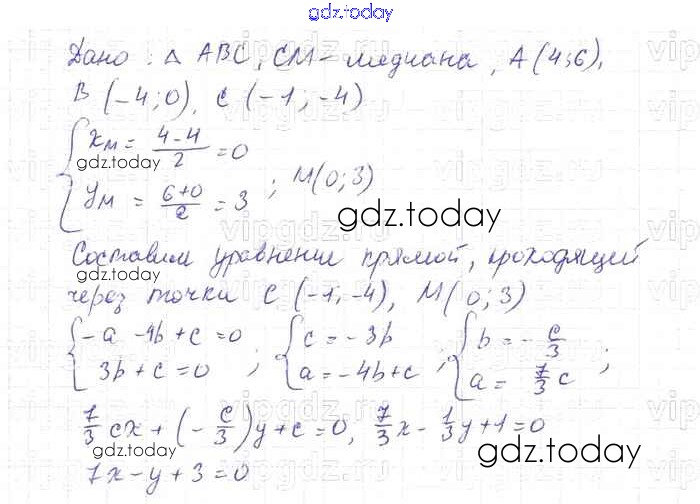 gdz.today
Дано: △ ABC, CM - медиана, A(4;6),
B(-4;0), C(-1;-4)
{ xM = (4-4)/2 = 0
gdz.today
yM = (6+0)/2 = 3 ; M(0;3)
gdz.today
Составим уравнение прямой, проходящей
через точки C(-1;-4), M(0;3)
{ -a -4b + c = 0 ; { c = -3b ; { b = -c/3 ;
3b + c = 0 a = -4b + c a = 7/3 c
7/3 cx + (-c/3)y + c = 0, 7/3 x - 1/3 y + 1 = 0
gdz.today gdz.today
7x - y + 3 = 0